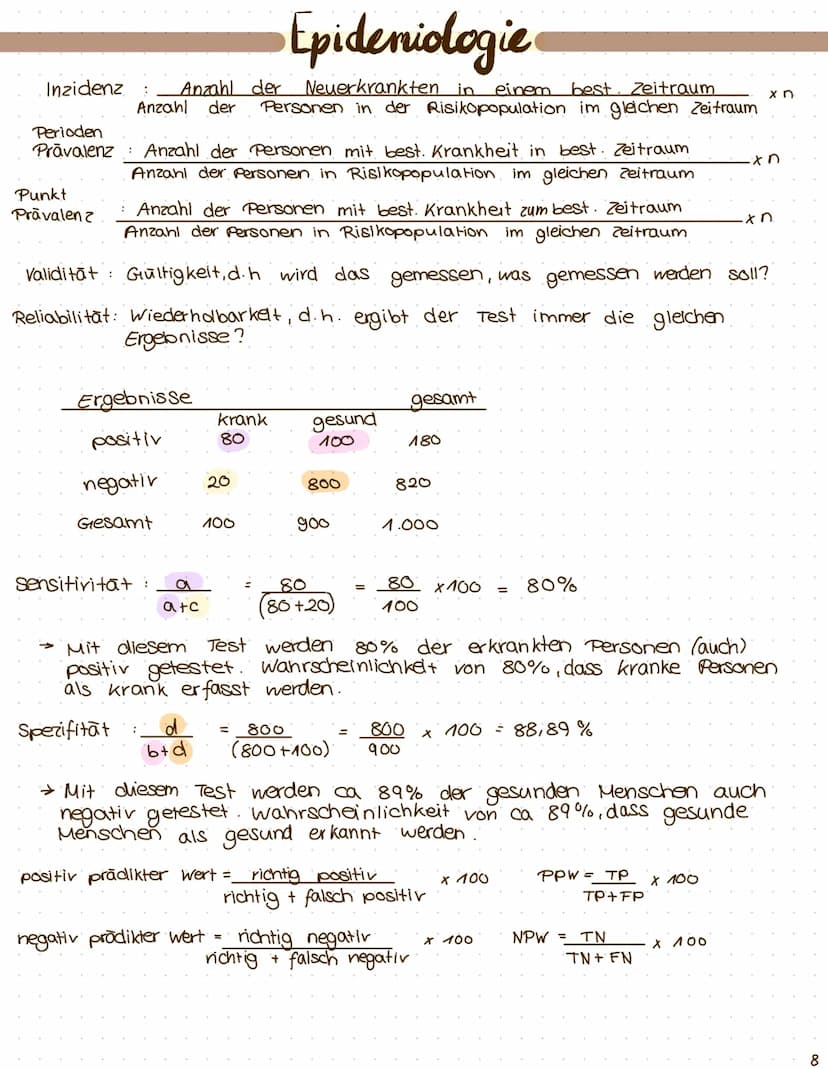 Epidemiologie
Inzidenz : Anzahl der Neuerkrankten in einem best. Zeitraum x n
Anzahl der Personen in der Risikopopulation im gleichen Zeitraum
Perioden
Prävalenz : Anzahl der Personen mit best. Krankheit in best. Zeitraum x n
Anzahl der Personen in Risikopopulation im gleichen Zeitraum
Punkt
Prävalenz : Anzahl der Personen mit best. Krankheit zum best. Zeitraum x n
Anzahl der Personen in Risikopopulation im gleichen Zeitraum
Validität : Gültigkeit, d.h wird das gemessen, was gemessen werden soll?
Reliabilität: Wiederholbarkeit, d.h. ergibt der Test immer die gleichen
Ergebnisse?
Ergebnisse gesamt
krank gesund
positiv 80 100 180
negativ 20 800 820
Gesamt 100 900 1.000
Sensitivität : a = 80 = 80 x 100 = 80%
a+c (80+20) 100
→ Mit diesem Test werden 80% der erkrankten Personen (auch)
positiv getestet. Wahrscheinlichkeit von 80%, dass kranke Personen
als krank erfasst werden.
Spezifität : d = 800 = 800 x 100 = 88,89 %
b+d (800+100) 900
→ Mit diesem Test werden ca 89% der gesunden Menschen auch
negativ getestet. Wahrscheinlichkeit von ca 89%, dass gesunde
Menschen als gesund erkannt werden.
positiv prädikter Wert = richtig positiv x 100 PPW = TP x 100
richtig + falsch positiv TP+FP
negativ prädikter Wert = richtig negativ x 100 NPW = TN x 100
richtig + falsch negativ TN+FN
8